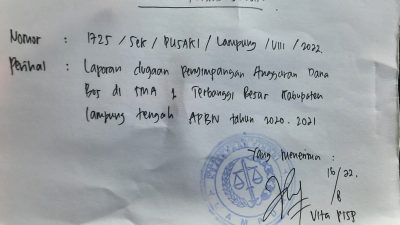 Nomor : 1725 / Sek / PUSAKI / Lampung / VIII / 2022.
Perihal : Laporan dugaan Penyimpangan Anggaran Dana
Bos di SMA 1 Terbanggi Besar Kabupaten
Lampung tengah APBN tahun 2020-2021
Yang menerima :
16/22.
8
Vita PTSP